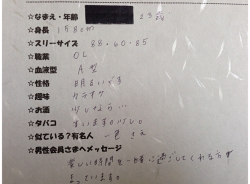 ☆なまえ・年齢
☆身長 158cm
☆スリーサイズ 88.60.85
☆職業 OL
☆血液型 A型
☆性格 明るいです
☆趣味 カラオケ
☆お酒 少しなら
☆タバコ すいません
☆似ている?有名人 一色さん
☆男性会員さまへメッセージ
楽しい時間を一緒に過ごしてくれる方
まっています。